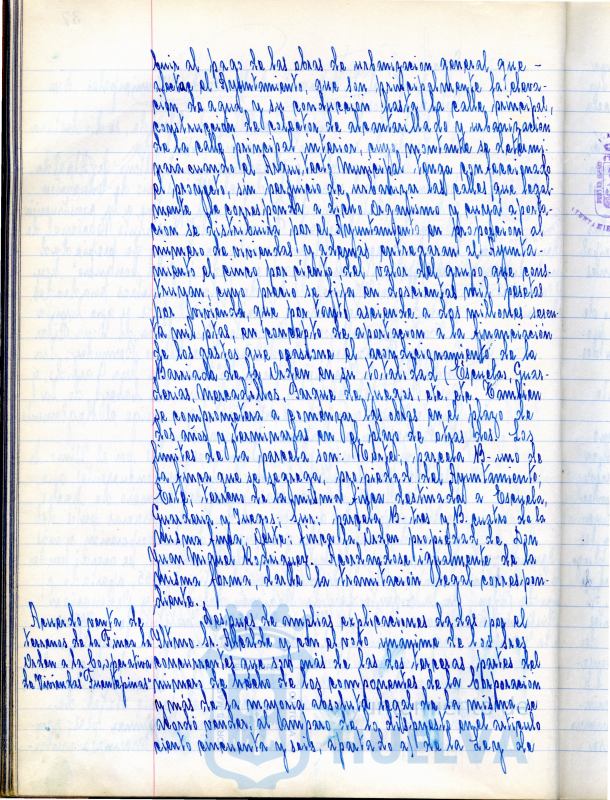 buir al pago de las obras de urbanización general, que
afectan al Ayuntamiento, que son principalmente la eleva-
ción de agua y su conducción hasta la calle principal,
construcción de colector de alcantarillado y urbanización
de la calle principal interior, cuyo montante se determi-
nará cuando el Arquitecto Municipal tenga confeccionado
el proyecto, sin perjuicio de urbanizar las calles que legal-
mente le corresponda a dicho Organismo y cuya aporta-
ción se distribuirá por el Ayuntamiento en proporción al
número de viviendas y además entregarán al Ayunta-
miento el cinco por ciento del valor del grupo que cons-
truyan, cuyo precio se fija en doscientas mil pesetas
por vivienda, que por tanto asciende a dos millones sesen-
ta mil ptas, en concepto de aportación a la financiación
de los gastos que ocasione el acondicionamiento de la
Barriada de la Orden en su totalidad (Escuela, Guar-
derías, Mercadillos, Parque de juegos, etc, etc, También
se comprometerá a comenzar las obras en el plazo de
dos años y terminarlas en el plazo de otros dos. Los
límites de la parcela son: Norte, parcela B-uno de
la finca que se segrega, propiedad del Ayuntamiento;
Este; terreno de la misma finca destinada a Escuela,
Guardería y Juegos; Sur: parcela B-tres y B-cuatro de la
misma finca; Oeste: finca la Orden propiedad de Don
Juan Miguel Rodríguez. Acordándose igualmente de la
misma forma darle la tramitación legal correspon-
diente.
Acuerdo venta de
terrenos de la Finca la
Orden a la Cooperativa
de Viviendas "Fuentepinas"
Después de amplias explicaciones dadas por el
Iltmo. Sr. Alcalde y con el voto unánime de los Sres
concurrentes que son más de las dos terceras partes del
número de hecho de los componentes de la Corporación
y más de la mayoría absoluta legal de la misma, se
acordó vender, al amparo de lo dispuesto en el artículo
ciento cincuenta y seis, apartado a) de la Ley de
HUELVA